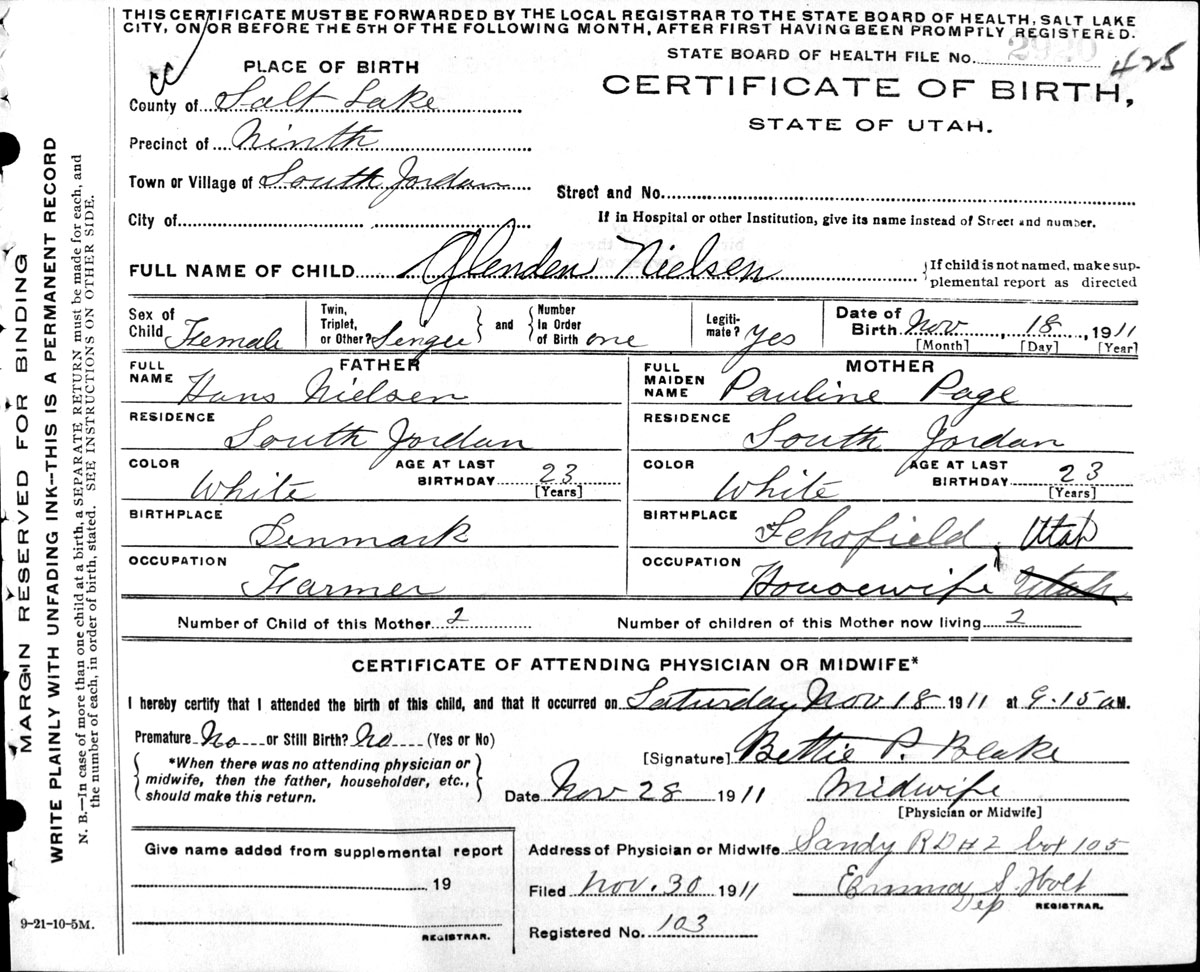 THIS CERTIFICATE MUST BE FORWARDED BY THE LOCAL REGISTRAR TO THE STATE BOARD OF HEALTH, SALT LAKE
CITY, ON OR BEFORE THE 5TH OF THE FOLLOWING MONTH, AFTER FIRST HAVING BEEN PROMPTLY REGISTERED.
STATE BOARD OF HEALTH FILE No. 425
cc
PLACE OF BIRTH
CERTIFICATE OF BIRTH,
STATE OF UTAH.
County of Salt Lake
Precinct of Ninth
Town or Village of South Jordan
Street and No.
City of
If in Hospital or other Institution, give its name instead of Street and number.
FULL NAME OF CHILD Glenden Nielsen
{If child is not named, make sup-
plemental report as directed
Sex of Child Female
Twin, Triplet, or Other? Singel } and { Number In Order of Birth one
Legiti-mate? Yes
Date of Birth Nov, 18, 1911
[Month] [Day] [Year]
FATHER
FULL NAME Hans Nielsen
RESIDENCE South Jordan
COLOR White AGE AT LAST BIRTHDAY 23 [Years]
BIRTHPLACE Denmark
OCCUPATION Farmer
MOTHER
FULL MAIDEN NAME Pauline Page
RESIDENCE South Jordan
COLOR White AGE AT LAST BIRTHDAY 23 [Years]
BIRTHPLACE Schofield, Utah
OCCUPATION Housewife Utah
Number of Child of this Mother 2 Number of children of this Mother now living 2
CERTIFICATE OF ATTENDING PHYSICIAN OR MIDWIFE*
I hereby certify that I attended the birth of this child, and that it occurred on Saturday Nov 18 1911 at 9.15 a M.
Premature No or Still Birth? No (Yes or No)
{ *When there was no attending physician or
midwife, then the father, householder, etc.,
should make this return. }
[Signature] Bettie P. Blake
Date Nov 28 1911 Midwife
[Physician or Midwife]
Give name added from supplemental report
19
REGISTRAR.
Address of Physician or Midwife Sandy RD # 2 box 105
Filed Nov. 30 1911 Emma S. Holt
Dep REGISTRAR.
Registered No. 103
9-21-10-5M.
MARGIN RESERVED FOR BINDING
WRITE PLAINLY WITH UNFADING INK--THIS IS A PERMANENT RECORD
N. B.—In case of more than one child at a birth, a SEPARATE RETURN must be made for each, and
the number of each, in order of birth, stated. SEE INSTRUCTIONS ON OTHER SIDE.